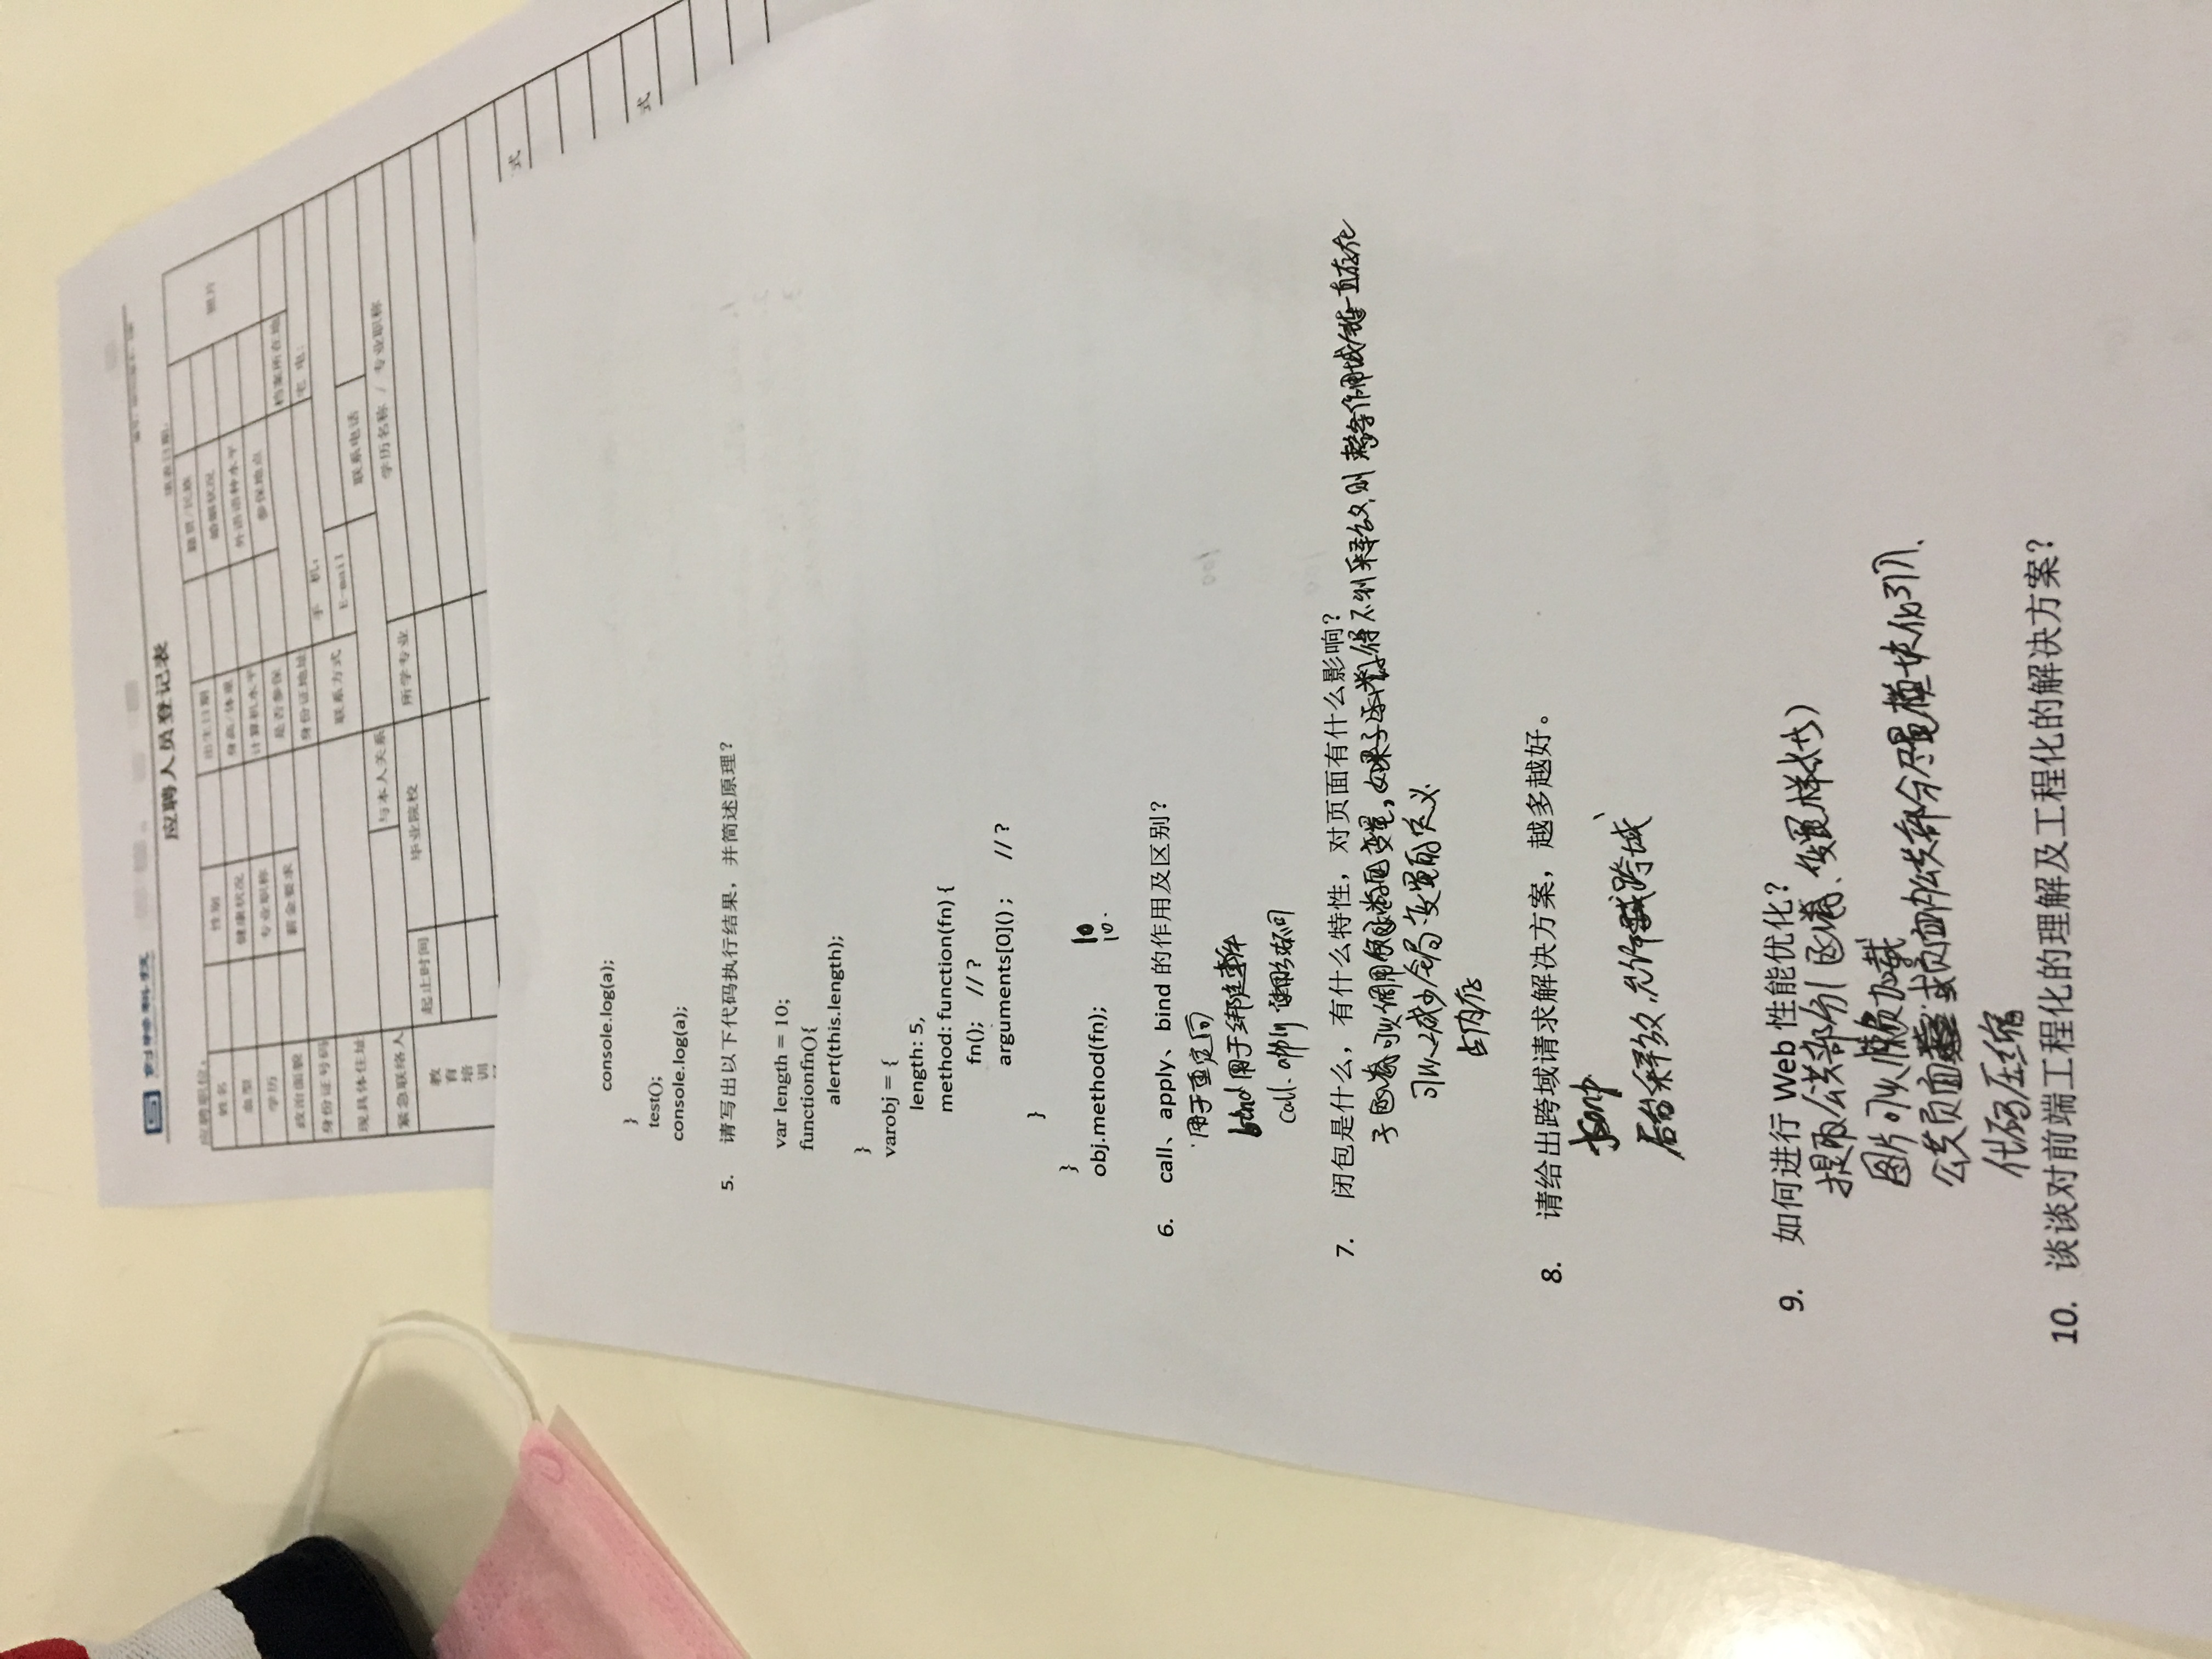 应聘人员登记表
填表日期:
应聘职位:
姓名 性别 出生日期 籍贯/民族 照片
血型 健康状况 身高/体重 婚姻状况
学历 专业职称 计算机水平 外语语种水平
政治面貌 薪金要求 是否参保 参保地点
身份证号码 身份证地址 档案所在地
现具体住址 联系方式 手 机: 宅 电:
E-mail
紧急联络人 与本人关系 联系电话
教育培训 起止时间 毕业院校 所学专业 学历名称 / 专业职称
式
式
console.log(a);
}
test();
console.log(a);
5. 请写出以下代码执行结果，并简述原理？
var length = 10;
functionfn(){
alert(this.length);
}
varobj = {
length: 5,
method: function(fn) {
fn(); // ?
arguments[0]() ; // ?
}
}
obj.method(fn); 10
10.
6. call、apply、bind 的作用及区别？
用于重定向
bind 用于绑定事件
call. apply 使用方式不同
7. 闭包是什么，有什么特性，对页面有什么影响？
子函数可以调用父函数的变量，如果子函数得不到释放，则整条作用域链一直存在
可以减少全局变量的定义
占内存
8. 请给出跨域请求解决方案，越多越好。
jsonp
后台释放，允许跨域
9. 如何进行 Web 性能优化？
提取公共部分(函数、变量样式等)
图片可以懒加载
公共页面或页面内公共部分尽量模块化引入.
代码压缩
10. 谈谈对前端工程化的理解及工程化的解决方案？